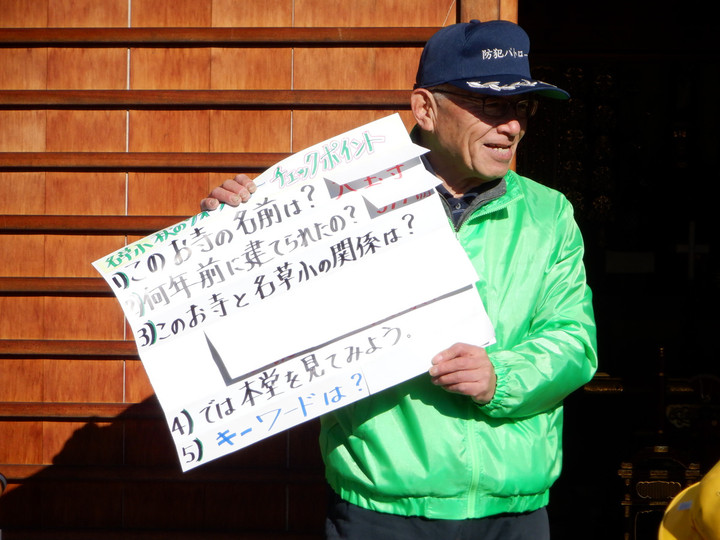 防犯パトロー
名草小 秋の チェックポイント
1)このお寺の名前は?
2)何年前に建てられたの?
3)このお寺と名草小の関係は?
4)では本堂を見てみよう。
5)キーワードは?